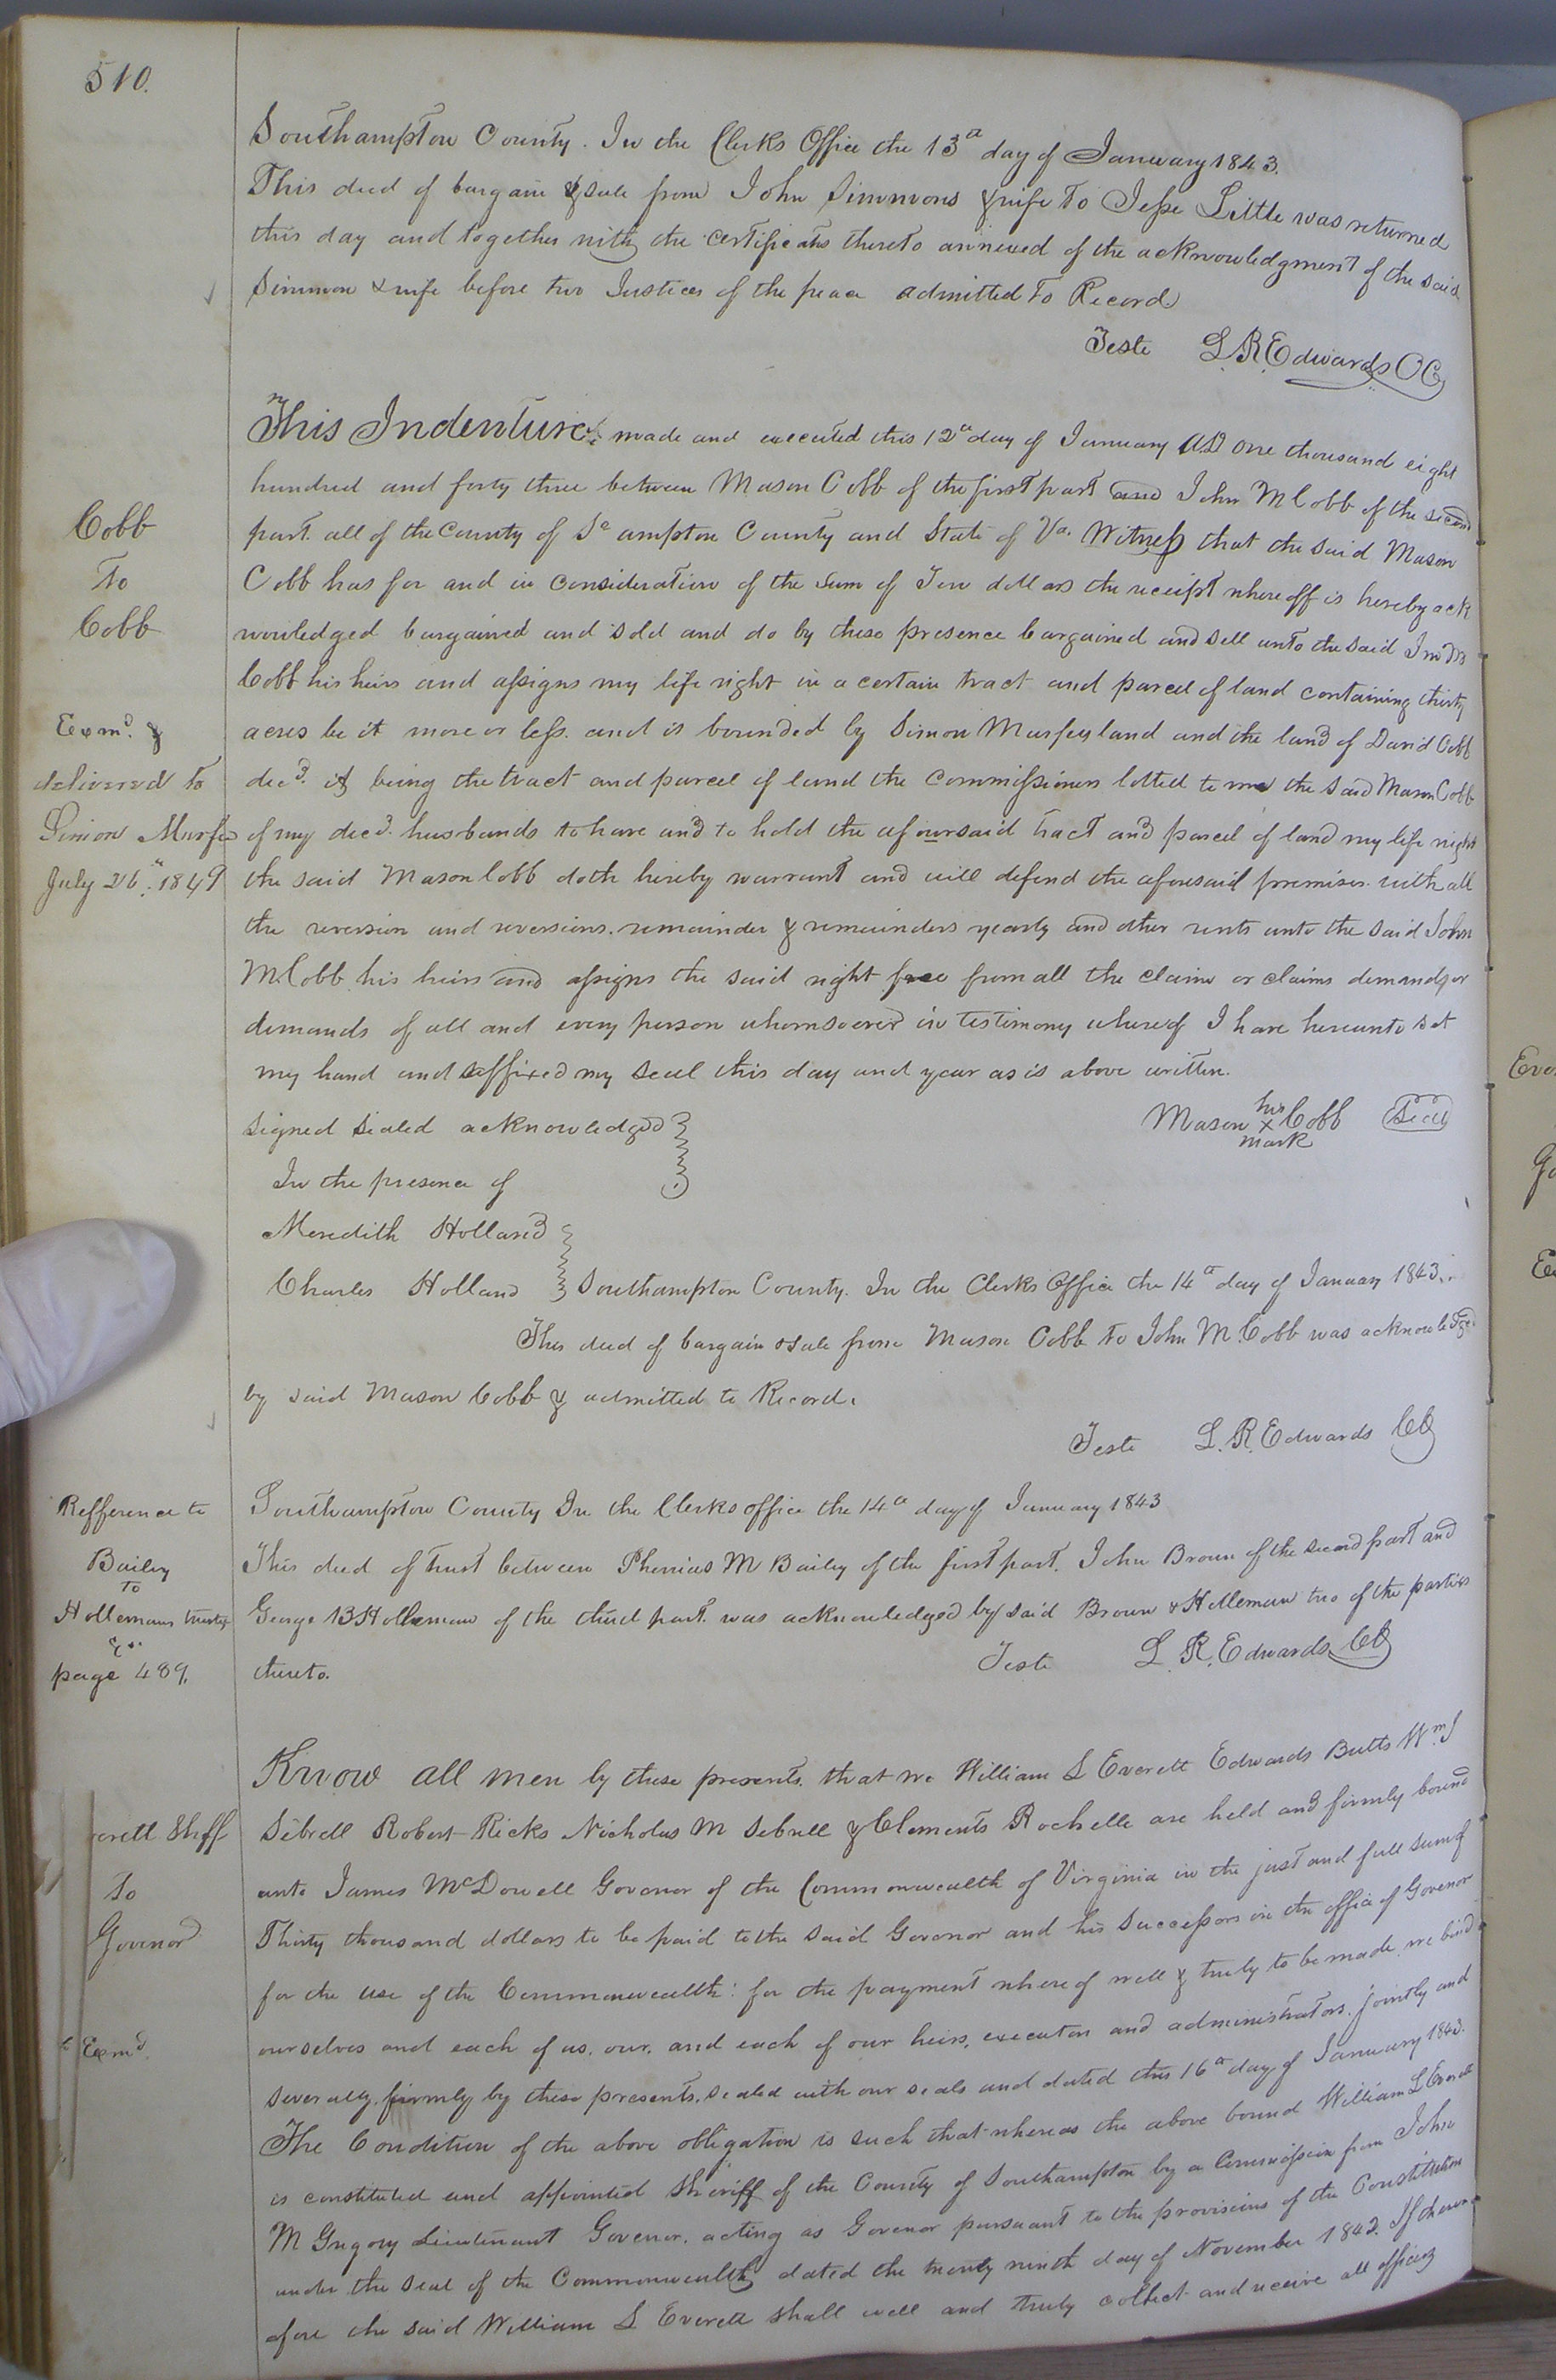 510.
Southampton County. In the Clerks Office the 13th day of January 1843.
This deed of bargain & sale from John Simmons & wife To Jesse Little was returned
this day and together with the certificates thereto annexed of the acknowledgment of the said
Simmon & wife before two Justices of the peace admitted to Record
Teste L. R. Edwards CC
This Indenture made and executed this 12th day of January AD one thousand eight
hundred and forty three between Mason Cobb of the first part and John M Cobb of the second
part. all of the County of So ampton County and State of Va. Witness that the said Mason
Cobb has for and in consideration of the sum of Ten dollars the receipt where off is hereby ack
nowledged bargained and sold and do by these presence bargained and sell unto the said Jno M
Cobb his heirs and assigns my life right in a certain tract and parcel of land containing thirty
acres be it more or less. and is bounded by Simon Murfey land and the land of David Cobb
decd. it being the tract and parcel of land the commissioners lotted to me the said Mason Cobb
of my decd. husbands to have and to hold the afoursaid tract and parcel of land my life right
the said Mason Cobb doth hereby warrant and will defend the aforesaid premises with all
the reversion and reversions. remainder & remainders yearly and other rents unto the said John
M. Cobb his heirs and assigns the said right free from all the claim or claims demand, or
demands of all and every person whomsoever in testimony whereof I have hereunto set
my hand and affixed my seal this day and year as is above written.
Signed sealed acknowledged
In the presence of
Meredith Holland
Charles Holland
Mason his x mark Cobb Seal
Southampton County. In the Clerks Office the 14th day of January 1843.
This deed of bargain & sale from Mason Cobb To John M. Cobb was acknowledged
by said Mason Cobb & admitted to Record.
Teste L. R. Edwards CC
Southampton County In the Clerks office the 14th day of January 1843
This deed of trust between Phenias M Bailey of the first part. John Brown of the second part and
George B Holleman of the third part. was acknowledged by said Brown & Holleman two of the parties
thereto.
Teste L. R. Edwards CC
Know all men by these presents. that we William L Everett Edwards Butts Wm. J
Sebrell Robert Ricks Nicholas M Sebrell & Clements Rochelle are held and firmly bound
unto James McDowell Govenor of the Commonwealth of Virginia in the just and full sum of
Thirty thousand dollars to be paid to the said Govenor and his Successors in the office of Govenor
for the use of the Commonwealth: for the payment where of well & truly to be made we bind
ourselves and each of us, our, and each of our heirs, executors and administrators. jointly and
severally, firmly by these presents, sealed with our seals and dated this 16th day of January 1843.
The Condition of the above obligation is such that whereas the above bound William L Everett
is constituted and appointed Sheriff of the County of Southampton by a Commission from John
M Gregory Lieutenant Govenor, acting as Govenor pursuant to the provisions of the Constitution
under the seal of the Commonwealth dated the twenty ninth day of November 1842. If there
afore the said William L Everett shall well and truly collect and receive all officers
Cobb
To
Cobb
Exmd. &
delivered to
Simon Murfee
July 26th. 1849
Refference to
Bailey
To
Hollemans trustee
&c.
page 489.
erett Shff
To
Govenor
Exmd.